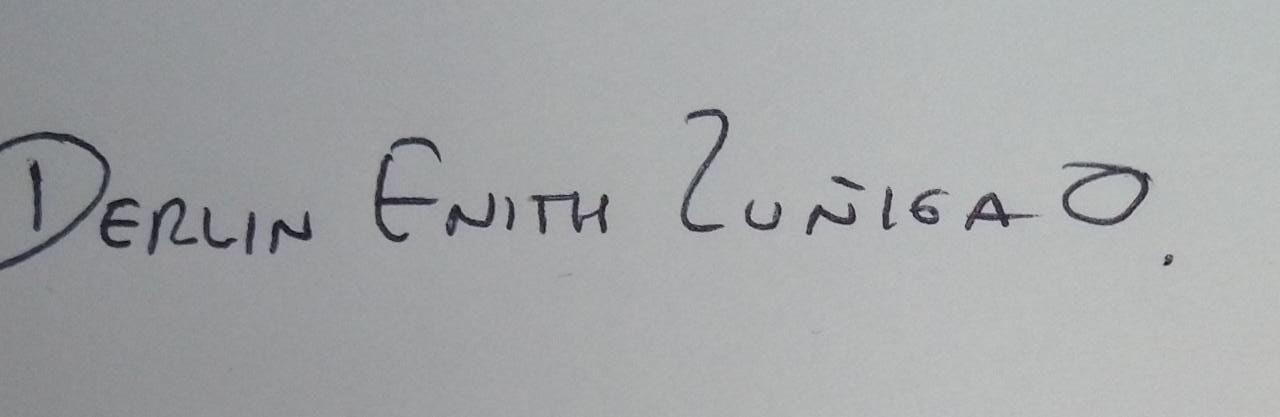 DERLIN ENITH ZUÑIGA O.